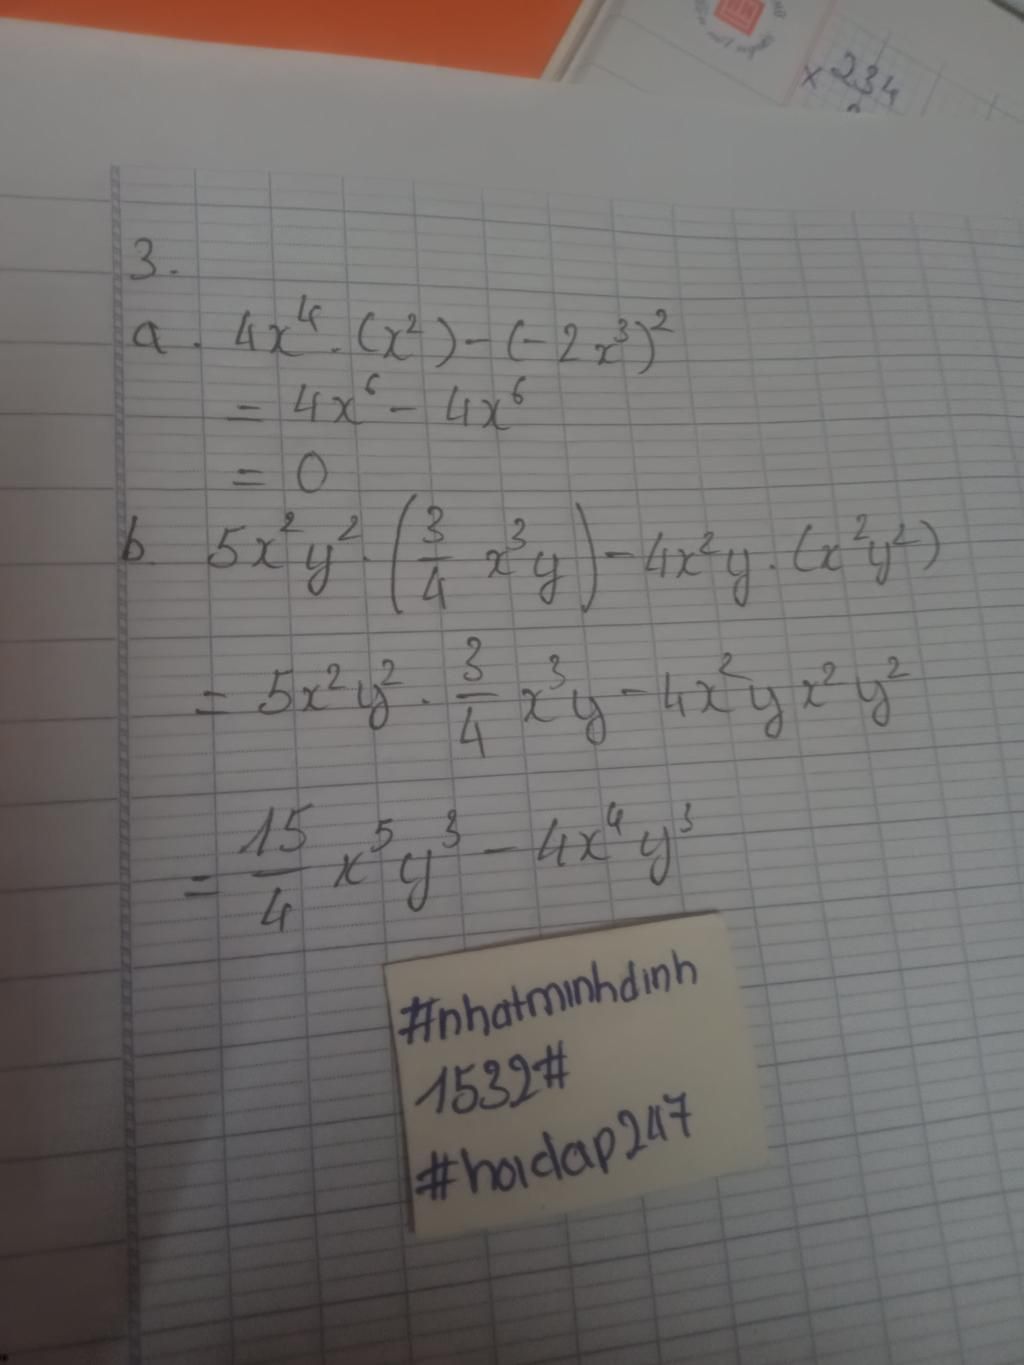 x 234
3.
a. 4x⁴.(x²)-(-2x³)²
= 4x⁶ - 4x⁶
= 0
b. 5x²y².(3/4 x³y)-4x²y.(x²y²)
= 5x²y².3/4 x³y-4x²yx²y²
= 15/4 x⁵y³ - 4x⁴y³
#nhatminhdinh
1532#
#hoidap247